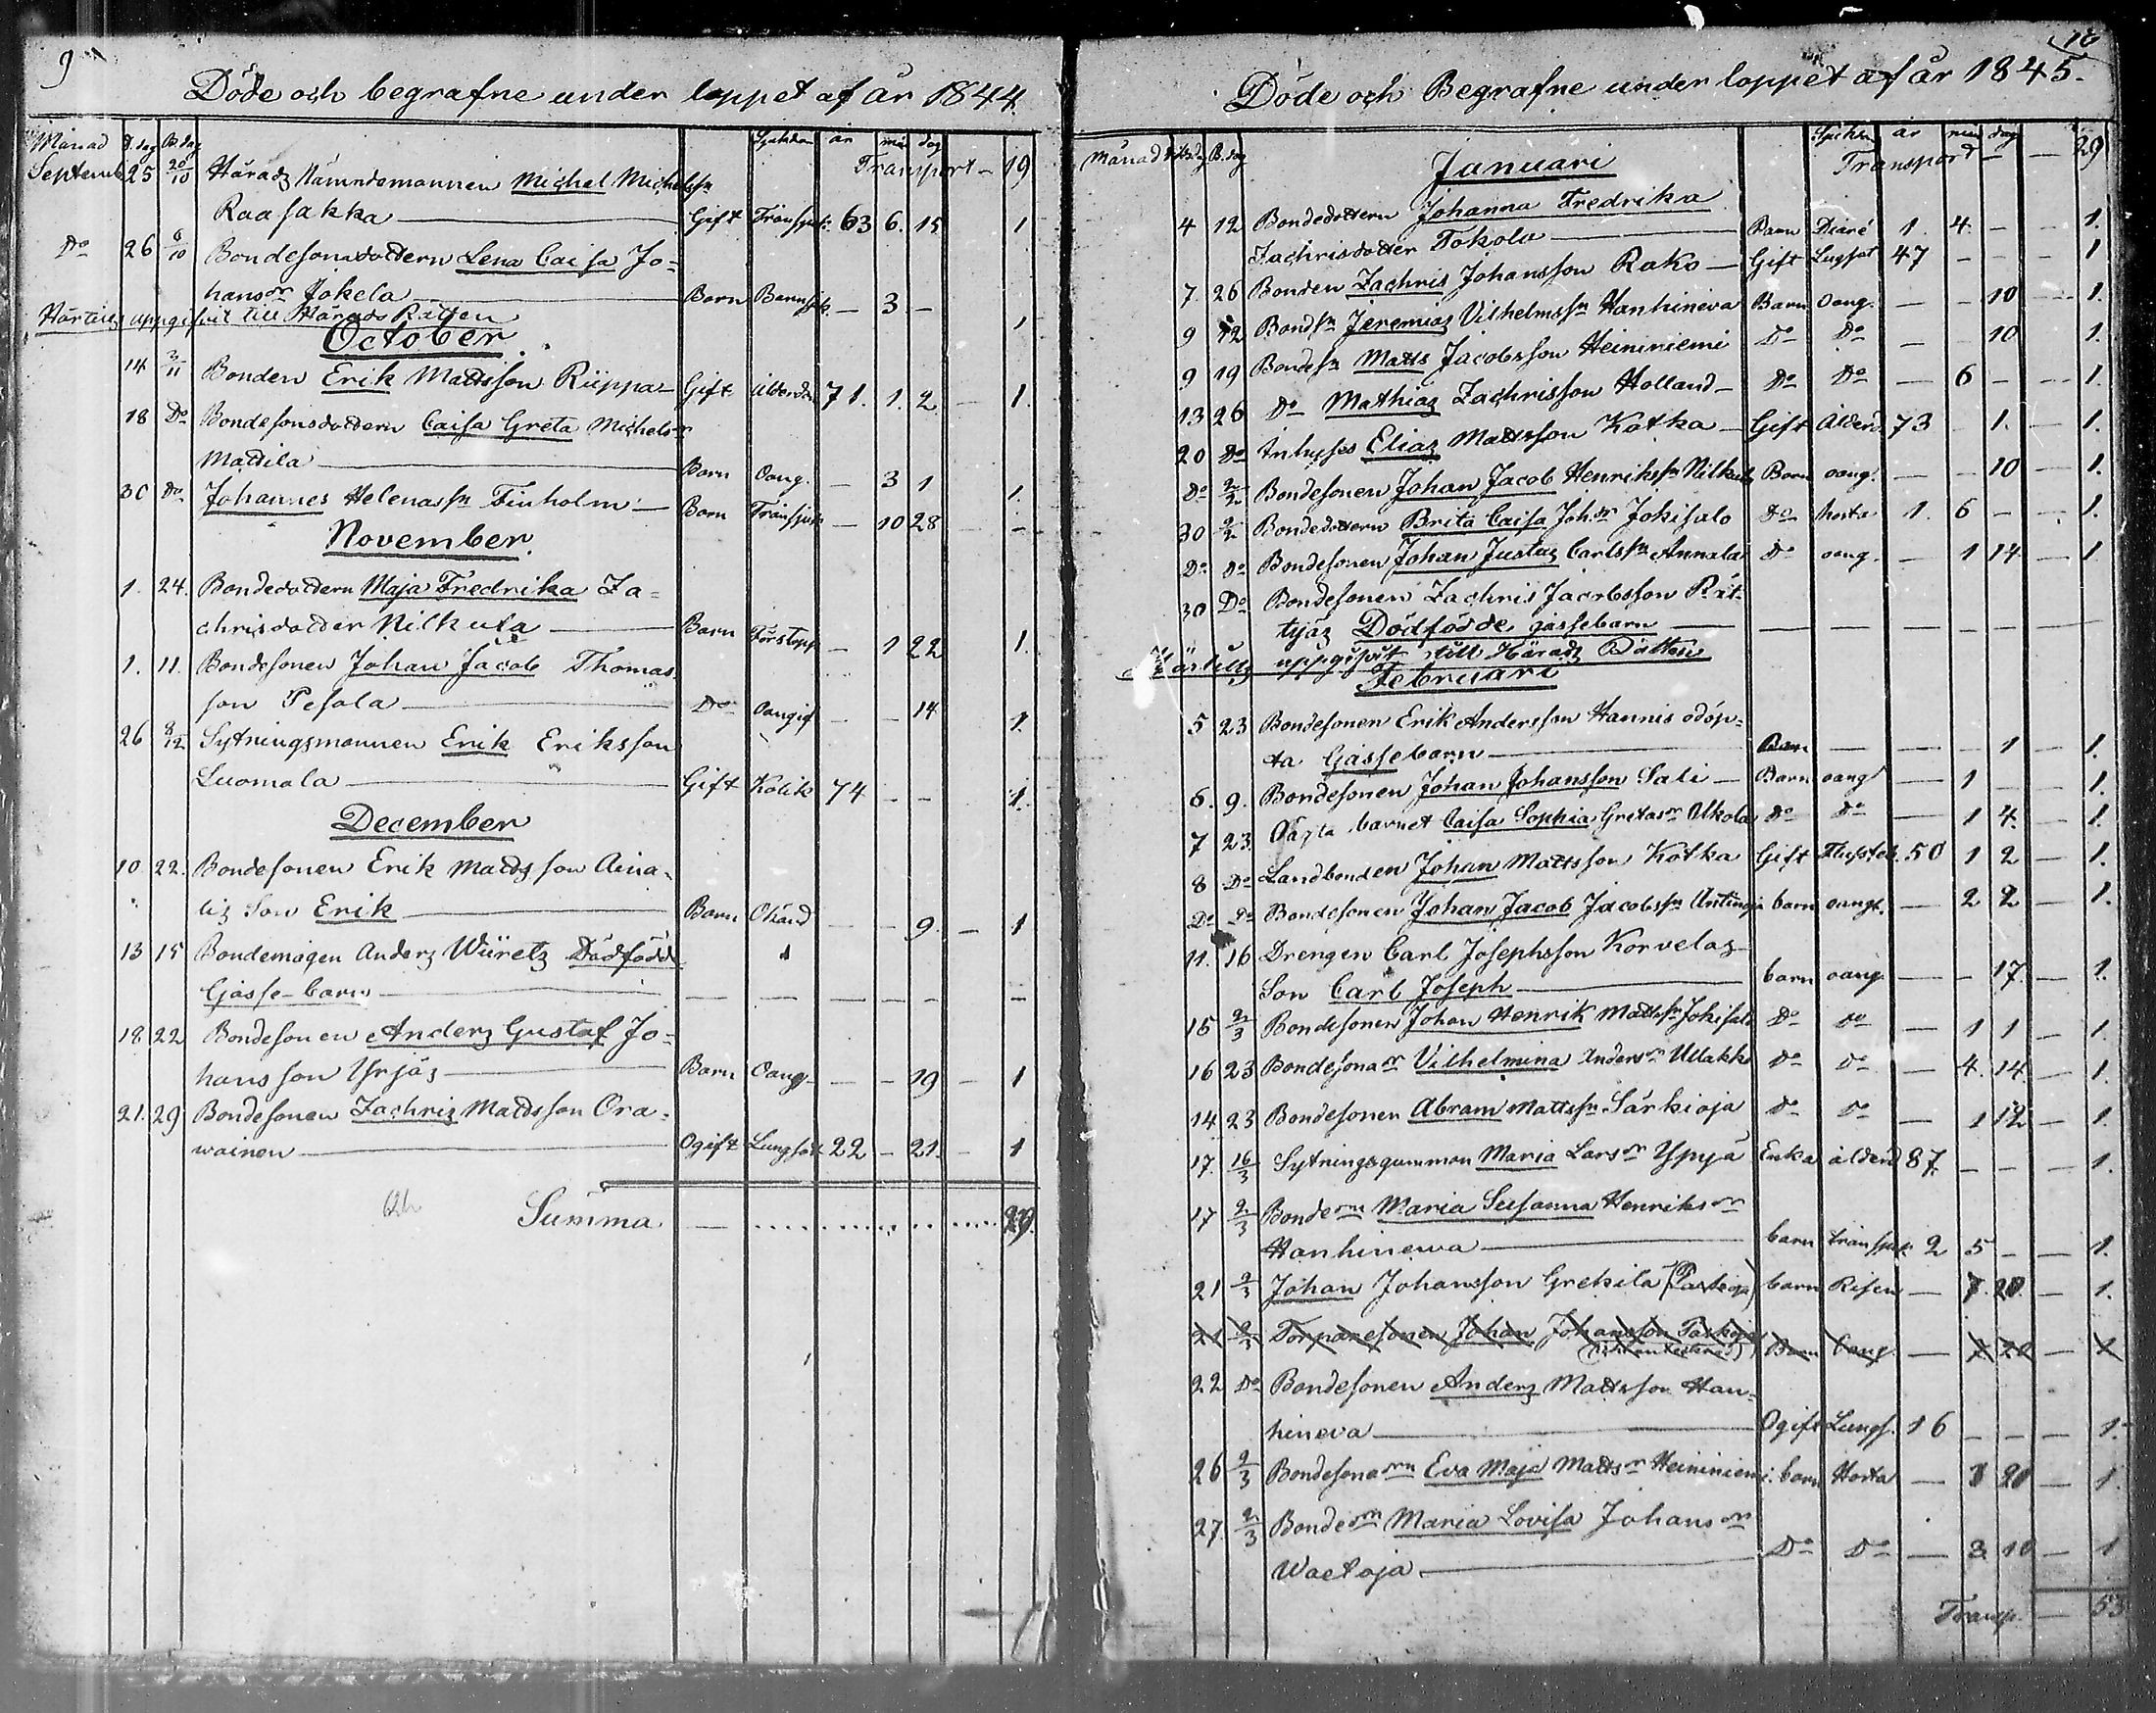 9
Döde och begrafne under loppet af år 1844.
Månad D. dag B. dag Sjukdom år mån dag
Transport - 19
Septemb 25 20/10 Härads Nämndemannen Michel Michelssn
Raasakka — Gift 63 6. 15 1
Do 26 6/10 Bondesonsdottern Lena Caisa Jo=
hansdr Jokela — Barn Barnsjuk. — 3 — 1
Härtills uppgifvit till Härads Rätten
October
14 3/11 Bonden Erik Mattsson Riippa — Gift ålderdom 71. 1. 2. — 1.
18 Do Bondesonsdottern Caisa Greta Michelsdr
Mattila — Barn Oang. — 3 1 1.
30 Do Johannes Helenassn Finholm — Barn — 10 28 — -
November.
1. 24. Bondedottern Maja Fredrika Za=
chrisdotter Nilkula — Barn Förstopp — 1 22 1.
1. 11. Bondesonen Johan Jacob Thomas
son Pesola — Do Oangif — — 14 1.
26 8/12 Sytningsmannen Erik Eriksson
Luomala — Gift Kolik 74 — — 1.
December
10. 22. Bondesonen Erik Mattsson Aina=
lis Son Erik — Barn Okänd — — 9. — 1
13 15 Bondemågen Anders Wiirets Dödfödd
Gosse-barn — — — — — — —
18 22 Bondesonen Anders Gustaf Jo=
hansson Yrjäs — Barn Oang — — 19 — 1
21. 29 Bondesonen Zachris Mattsson Ora=
wainen — Ogift Lungsot 22 — 21. — 1
Summa — 29.
10
Döde och Begrafne under loppet af år 1845.
Månad B. dag år mån dag
Januari Transport — — 29
4 12 Bondedottern Johanna Fredrika
Zachrisdotter Tokola — Barn Diaré 1. 4. — — 1.
7. 26 Bonden Zachris Johansson Rako — Gift Lugsot 47 — — — 1
9 12 Bondsn Jeremias Vilhelmssn Hanhineva Barn Oang. — — 10 — 1.
9 19 Bondesn Matts Jacobsson Heininiemi Do Do — — 10 1.
13 26 Do Mathias Zachrisson Holland — Do Do — 6 — — 1.
20 Do Inhyses Elias Mattsson Kotka — Gift Ålderd. 73 — 1. — 1.
Do 2/2 Bondesonen Johan Jacob Henrikssn Nilkula Barn oang. — — 10 — 1.
30 2/2 Bondedottern Brita Caisa Joh.dr Jokisalo Do hosta 1. 6 — — 1.
Do Do Bondesonen Johan Justus Carlssn Annala Do oang. — 1 14. — 1
30 Do Bondesonen Zachris Jacobsson Rät=
tyäs Dödfödde gossebarn — — — — — — —
Härtills uppgifvit till Härads Rätten
Februari
5 23 Bondesonen Erik Andersson Hannis odöp=
ta Gossebarn — Barn — — — 1 — 1.
6. 9. Bondesonen Johan Johansson Sali — Barn oang — 1 — — 1.
7 23. Oägta barnet Caisa Sophia Gretasdr Olkola Do Do — 1 4. — 1.
8 Do Landbonden Johan Mattsson Kotka Gift 50 1 2 — 1.
Do Do Bondesonen Johan Jacob Jacobssn Untinoja barn oangf. — 2 2 — 1.
11. 16 Drengen Carl Josephsson Korvelas
Son Carl Joseph — barn oang. — — 17. — 1.
15 2/3 Bondesonen Johan Henrik Mattssn Jokisalo Do Do — 1 1 — 1.
16 23 Bondesonsdr Vilhelmina Andersdr Ullakko Do Do — 4. 14. — 1.
14 23 Bondesonen Abram Mattssn Särkioja Do Do — 1 12 — 1.
17. 16/3 Sytningsgumman Maria Larsdr Yppyä Enka ålderd 87. — — — 1.
17 2/3 Bondedrn Maria Susanna Henriksdr
Hanhinewa — barn 2 5 — — 1.
21 2/3 Johan Johansson Grekila (Paskoja) barn Risen — 7. 20. — 1.
21 2/3 Torparesonen Johan Johansson Paskoja
Barn Oang. — 7. 20 — 1
22 Do Bondesonen Anders Mattsson Han=
hineva — Ogift Lungs. 16 — — — 1.
26 2/3 Bondesonsdrn Eva Maja Mattsdr Heininiemi. barn Hosta — 1 20 — 1.
27. 2/3 Bondedrn Maria Lovisa Johansdr
Waetoja. — Do Do — 3. 10 — 1
Transp. — 53